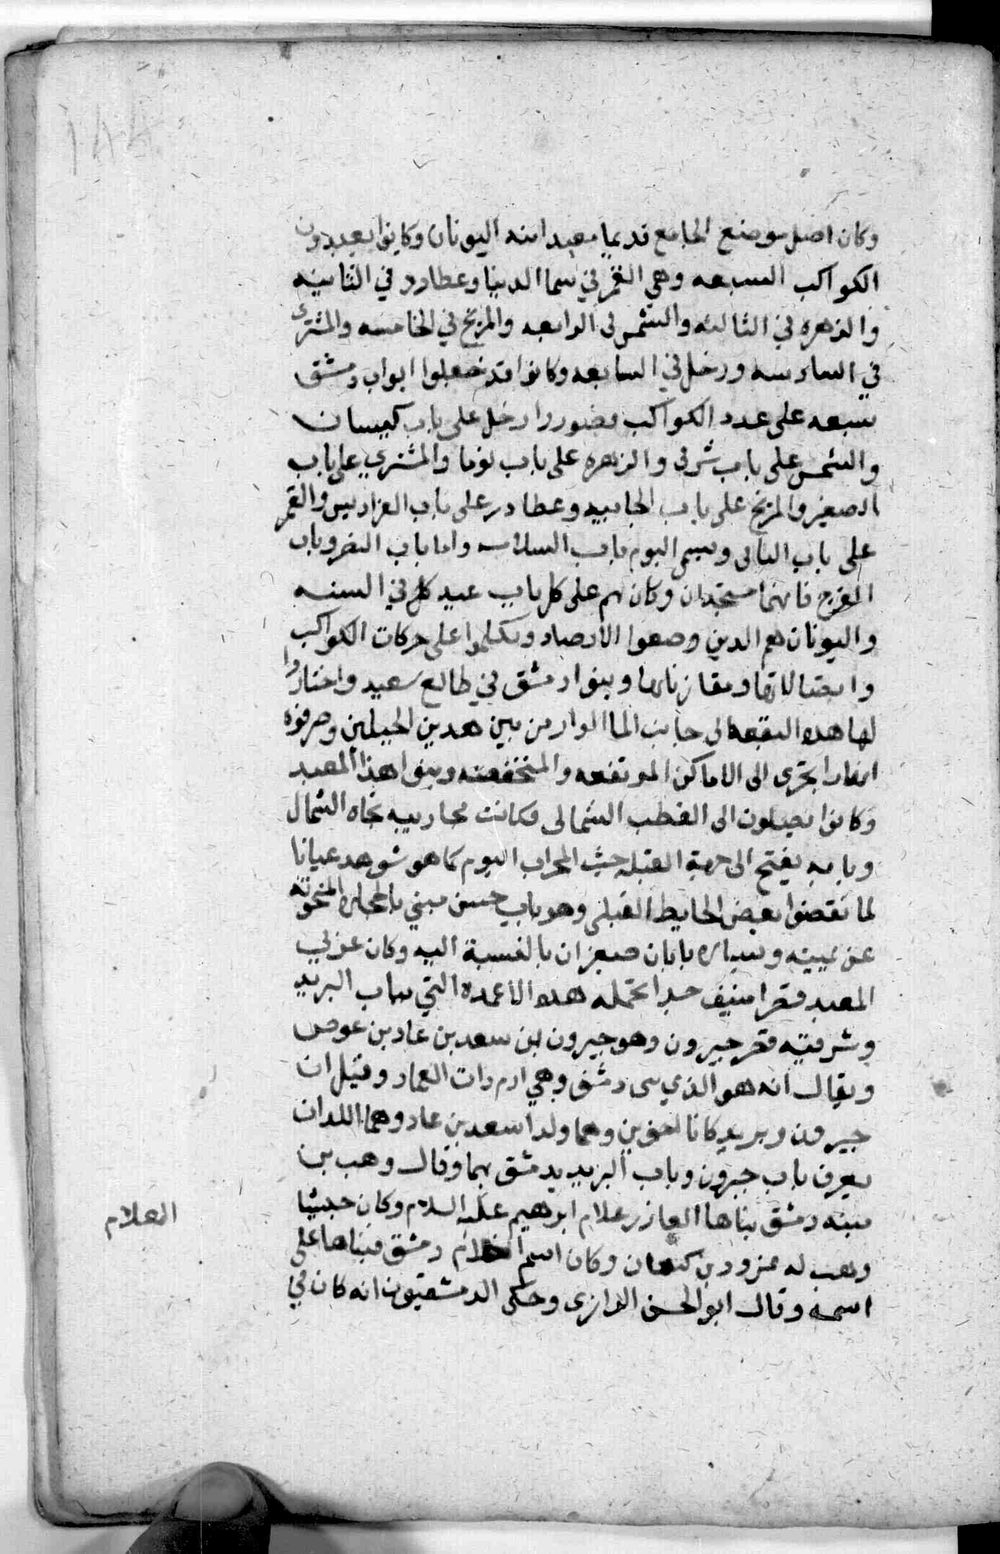 ١٨٨
وكان اصل موضع الجامع قديما معبدا بنته اليونان وكانوا يعبدون
الكواكب السبعه وهي القمر في سما الدنيا وعطارد في الثانيه
والزهره في الثالثه والشمس في الرابعه والمريخ في الخامسه والمشتري
في السادسه وزحل في السابعه وكانوا قد جعلوا ابواب دمشق
سبعه على عدد الكواكب فصوروا زحل على باب كيسان
والشمس على باب شرقي والزهره على باب توما والمشتري على باب
الصغير والمريخ على باب الجابيه وعطارد على باب الفراديس والقمر
على باب الثاني ويسمى اليوم باب السلامه واما باب النصر وباب
الفرج فانهما مستجدان وكان لهم على كل باب عيد كل في السنه
واليونان هم الدين وضعوا الارصاد وتكلموا على حركات الكواكب
واتصالاتها ومقارناتها وبنوا دمشق في طالع سعيد واختاروا
لها هده البقعه الى جانب الما الوارد من بين هدين الجبلين وصرفوه
انهارا تجري الى الاماكن المرتفعه والمنخفضه وبنوا هذا المعبد
وكانوا يصلون الى القطب الشمالي فكانت محاريبه تجاه الشمال
وبابه يفتح الى جهة القبله حيث المحراب اليوم كما هو شوهد عيانا
لما نقضوا بعض الحايط القبلي وهو باب حسن مبني بالحجاره المنحوته
عن يمينه ويساره بابان صغيران بالنسبة اليه وكان غربي
المعبد قصرا منيف جدا تحمله هده الاعمدة التي بباب البريد
وشرقيه قصر جيرون وهو جيرون بن سعد بن عاد بن عوص
ويقال انه هو الذي بنى دمشق وهي ارم ذات العماد وقيل ان
جيرون وبريد كانا اخوين وهما ولدا سعد بن عاد وهما اللدان
يعرف باب جيرون وباب البريد بدمشق بهما وقال وهب بن
منبه دمشق بناها العازر غلام ابرهيم عليه السلام وكان حبشيا
وهبه له نمرود بن كنعان وكان اسم الغلام دمشق فبناها على
اسمه وقال ابو الحسن الرازي وحكى الدمشقيون انه كان في
الغلام